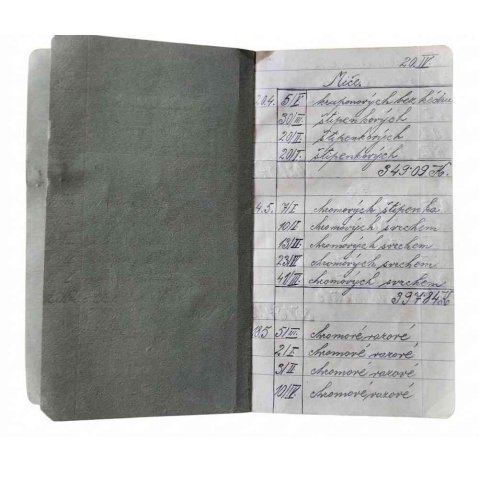 20/IV
Míče.
20.4. 5/I kruponových bez
30/III. štípenkových
20/II štípenkových
20/I. štípenkových
349·09 K.
4.5. 7/I chromových štípenka
10/II chromových svrchem
13/III chromových svrchem
23/III chromových svrchem
41/III chromových svrchem
397·84 K
13.5 5/III. chromové razové
2/I chromové razové
3/II chromové razové
10/IV chromové razové